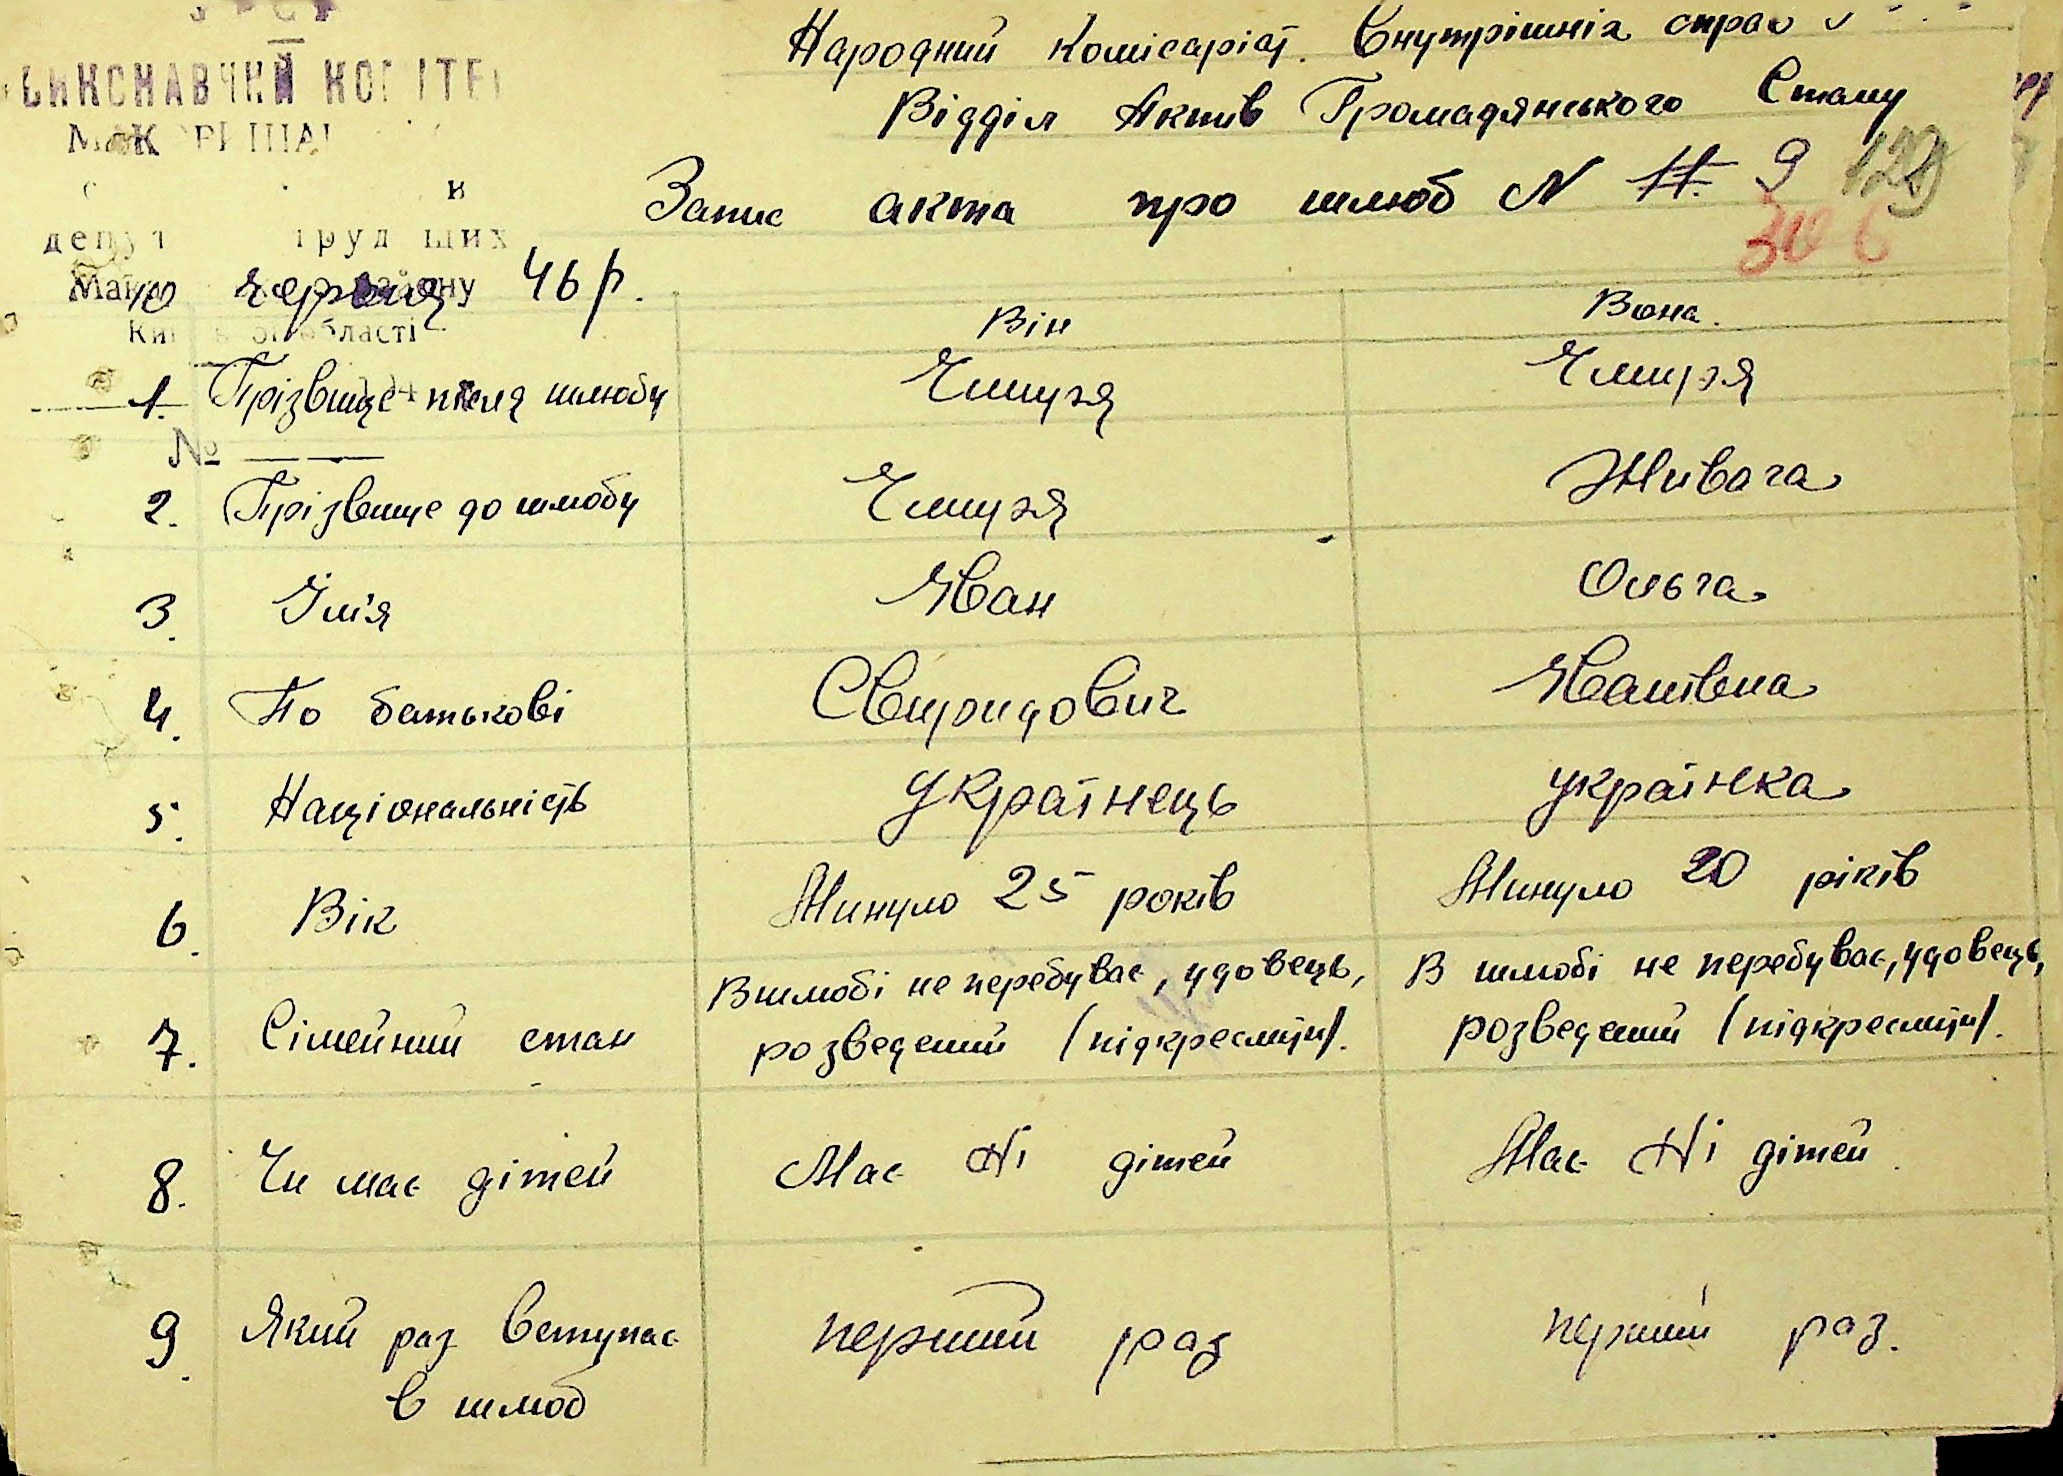 УРСР
ВИКОНАВЧИЙ КОМІТЕТ
депут трудящих
області
№
Народний Комісаріат Внутрішніх справ
Відділ Актів Громадянського Стану
Запис акта про шлюб N 11. 9 129
30 6
10 червня 46 р.
Він Вона.
1. Прізвище після шлюбу Чмиря Чмиря
2. Прізвище до шлюбу Чмиря Живага
3. Ім'я Іван Ольга
4. По батькові Свиридович Іванівна
5. Національність Українець українка
6. Вік Минуло 25 років Минуло 20 ріків
7. Сімейний стан В шлюбі не перебуває, удовець, розведений /підкреслити/. В шлюбі не перебуває, удовець, розведений /підкреслити/.
8. Чи має дітей Має Ні дітей Має Ні дітей
9. Який раз вступає в шлюб перший раз перший раз.